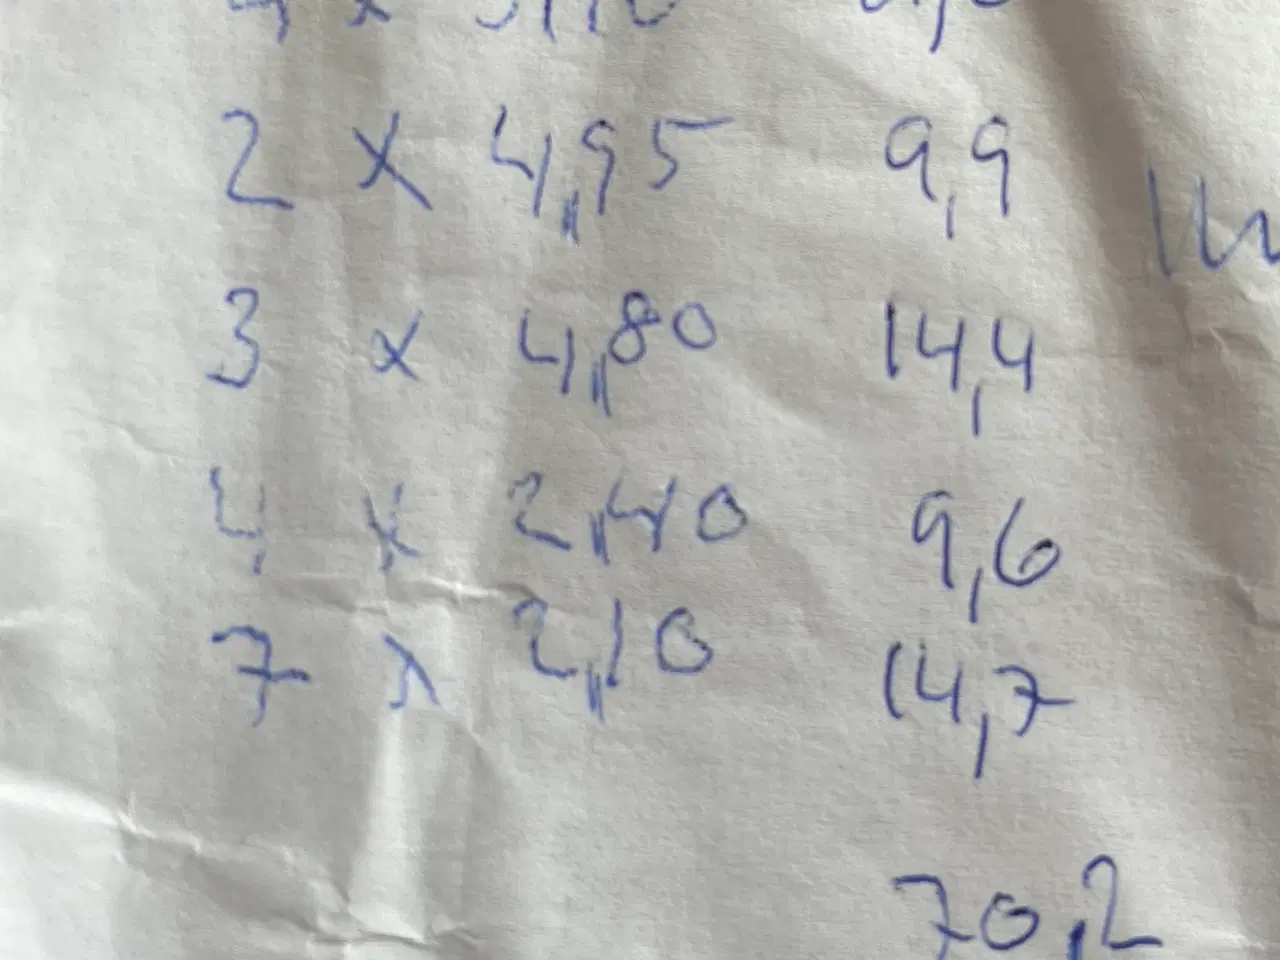 2 x 4,95 9,9
3 x 4,80 14,4
4 x 2,40 9,6
7 x 2,10 14,7
70,2